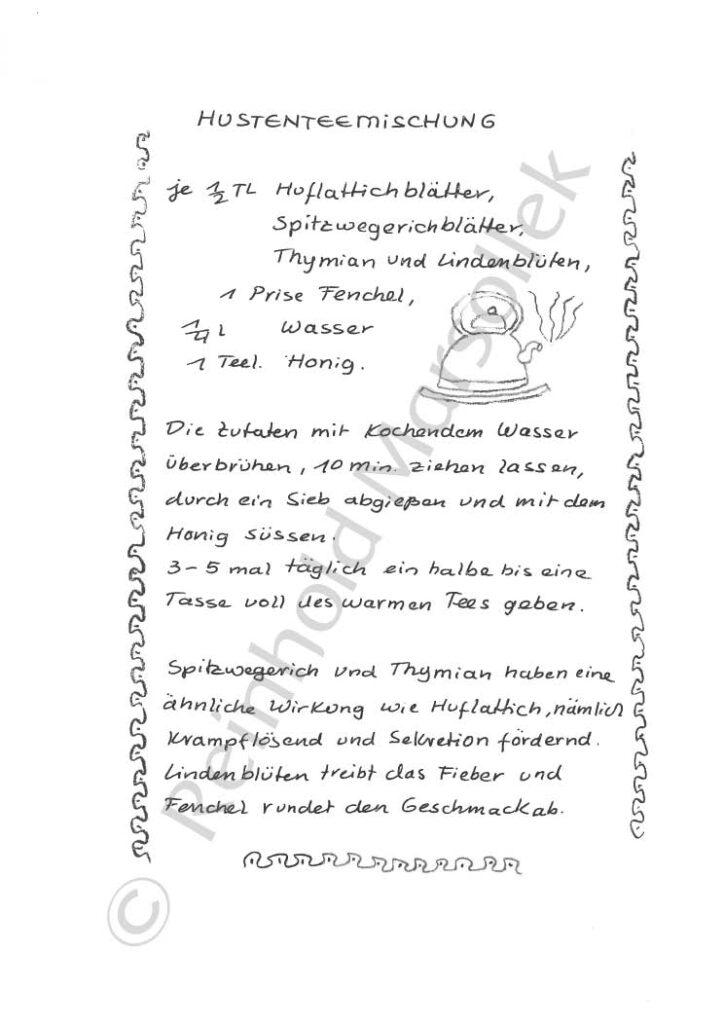 HUSTENTEEMISCHUNG
je 1/2 TL Huflattichblätter,
Spitzwegerichblätter,
Thymian und Lindenblüten,
1 Prise Fenchel,
1/4 L Wasser
1 Teel. Honig.
Die Zutaten mit kochendem Wasser
überbrühen, 10 min. ziehen lassen,
durch ein Sieb abgießen und mit dem
Honig süssen.
3-5 mal täglich ein halbe bis eine
Tasse voll des warmen Tees geben.
Spitzwegerich und Thymian haben eine
ähnliche Wirkung wie Huflattich, nämlich
Krampflösend und Sekretion fördernd.
Lindenblüten treibt das Fieber und
Fenchel rundet den Geschmack ab.
© Reinhold Marsollek